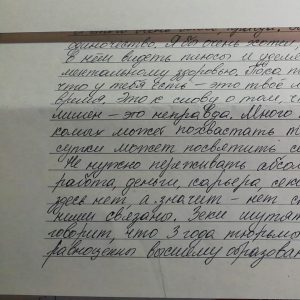 одиночество. Я бы очень хотел
в нём видеть плюсы и уделя
ментальному здоровью. Пока т
что у тебя есть – это твоё и
время. Это к слову о том, ч
лишен – это неправда. Много
комых может похвастать т
сутки может посвятить се
Не нужно переживать абсол
работа, деньги, карьера, сек
здесь нет, а значит – нет с
ними связано. Зеки шутят
говорит, что 3 года тюрьмы
равноценны высшему образован